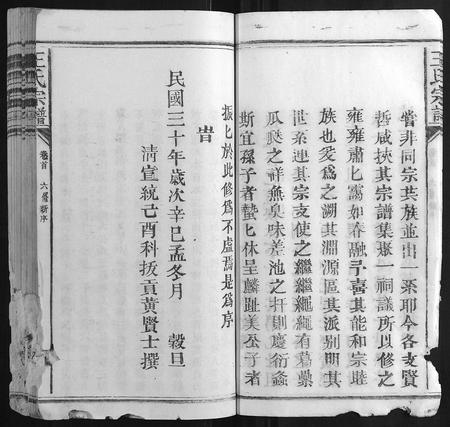 王氏宗譜
嘗非同宗共族並出一系耶今各支賢
哲咸挾其宗譜集聚一祠議所以修之
雍雍肅匕靄如春融予喜其能和宗睦
族也爰為之溯其淵源區其派别明其
世系連其宗支使之繼繼繩繩有葛藟
瓜瓞之祥無臭味差池之𠛬則慶衍螽
斯宜孫子者蟄匕休呈麟趾美公子者
振匕於此修為不虛焉是為序
旹
民國三十年歲次辛巳孟冬月 榖旦
清宣統己酉科拔貢黃賢士撰
王氏宗譜
卷首 六屆新序